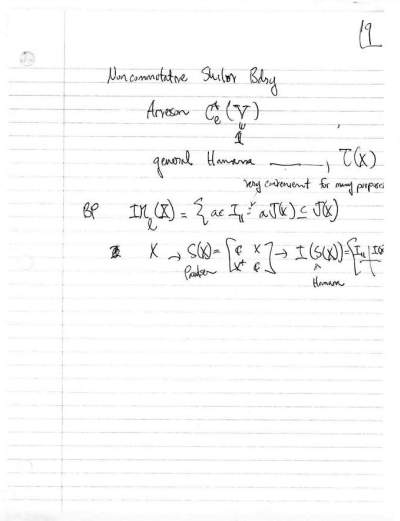 19
Noncommutative Shilov Bdry
Arveson C*e (V)
1
general Hamana ———, T(X)
very convenient for many purposes
BP IMℓ(X) = { a ∈ I11 : a J(X) ⊆ J(X)
X → S(X) = [ ¢ X X* ¢ ] → I(S(X)) = [ I11 | I(X)
Paulsen Hamana